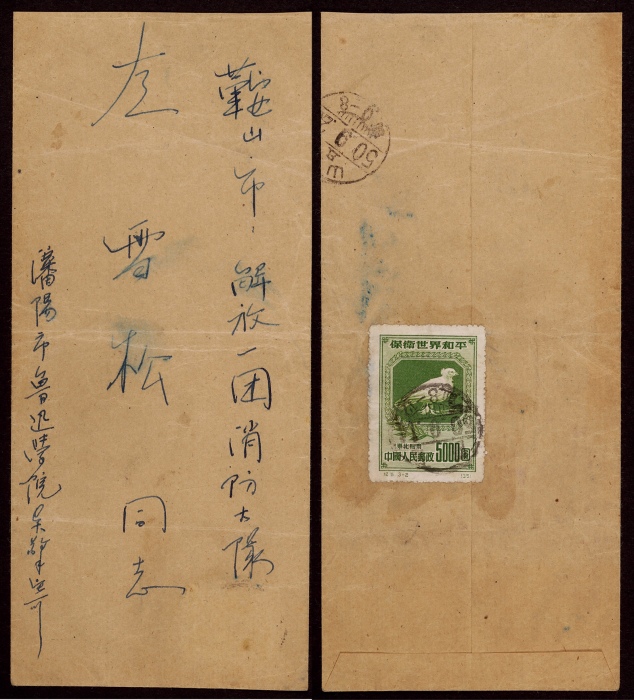 鞍山市解放一团消防大隊
左雪松同志
瀋陽市鲁迅学院
50 9
9-8
保衛世界和平
中國人民郵政 5000圓